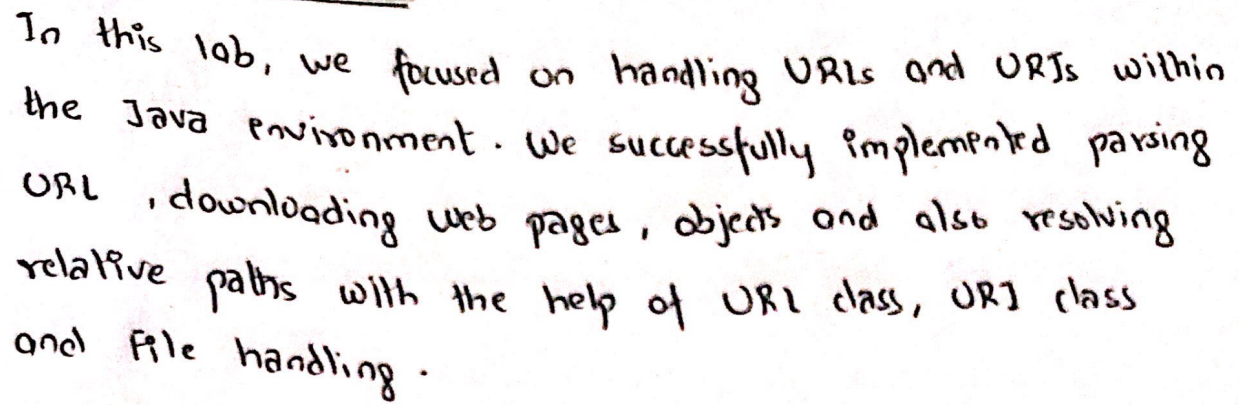 In this lab, we focused on handling URLs and URIs within
the Java environment. We successfully implemented parsing
URL, downloading web pages, objects and also resolving
relative paths with the help of URL class, URI class
and File handling.